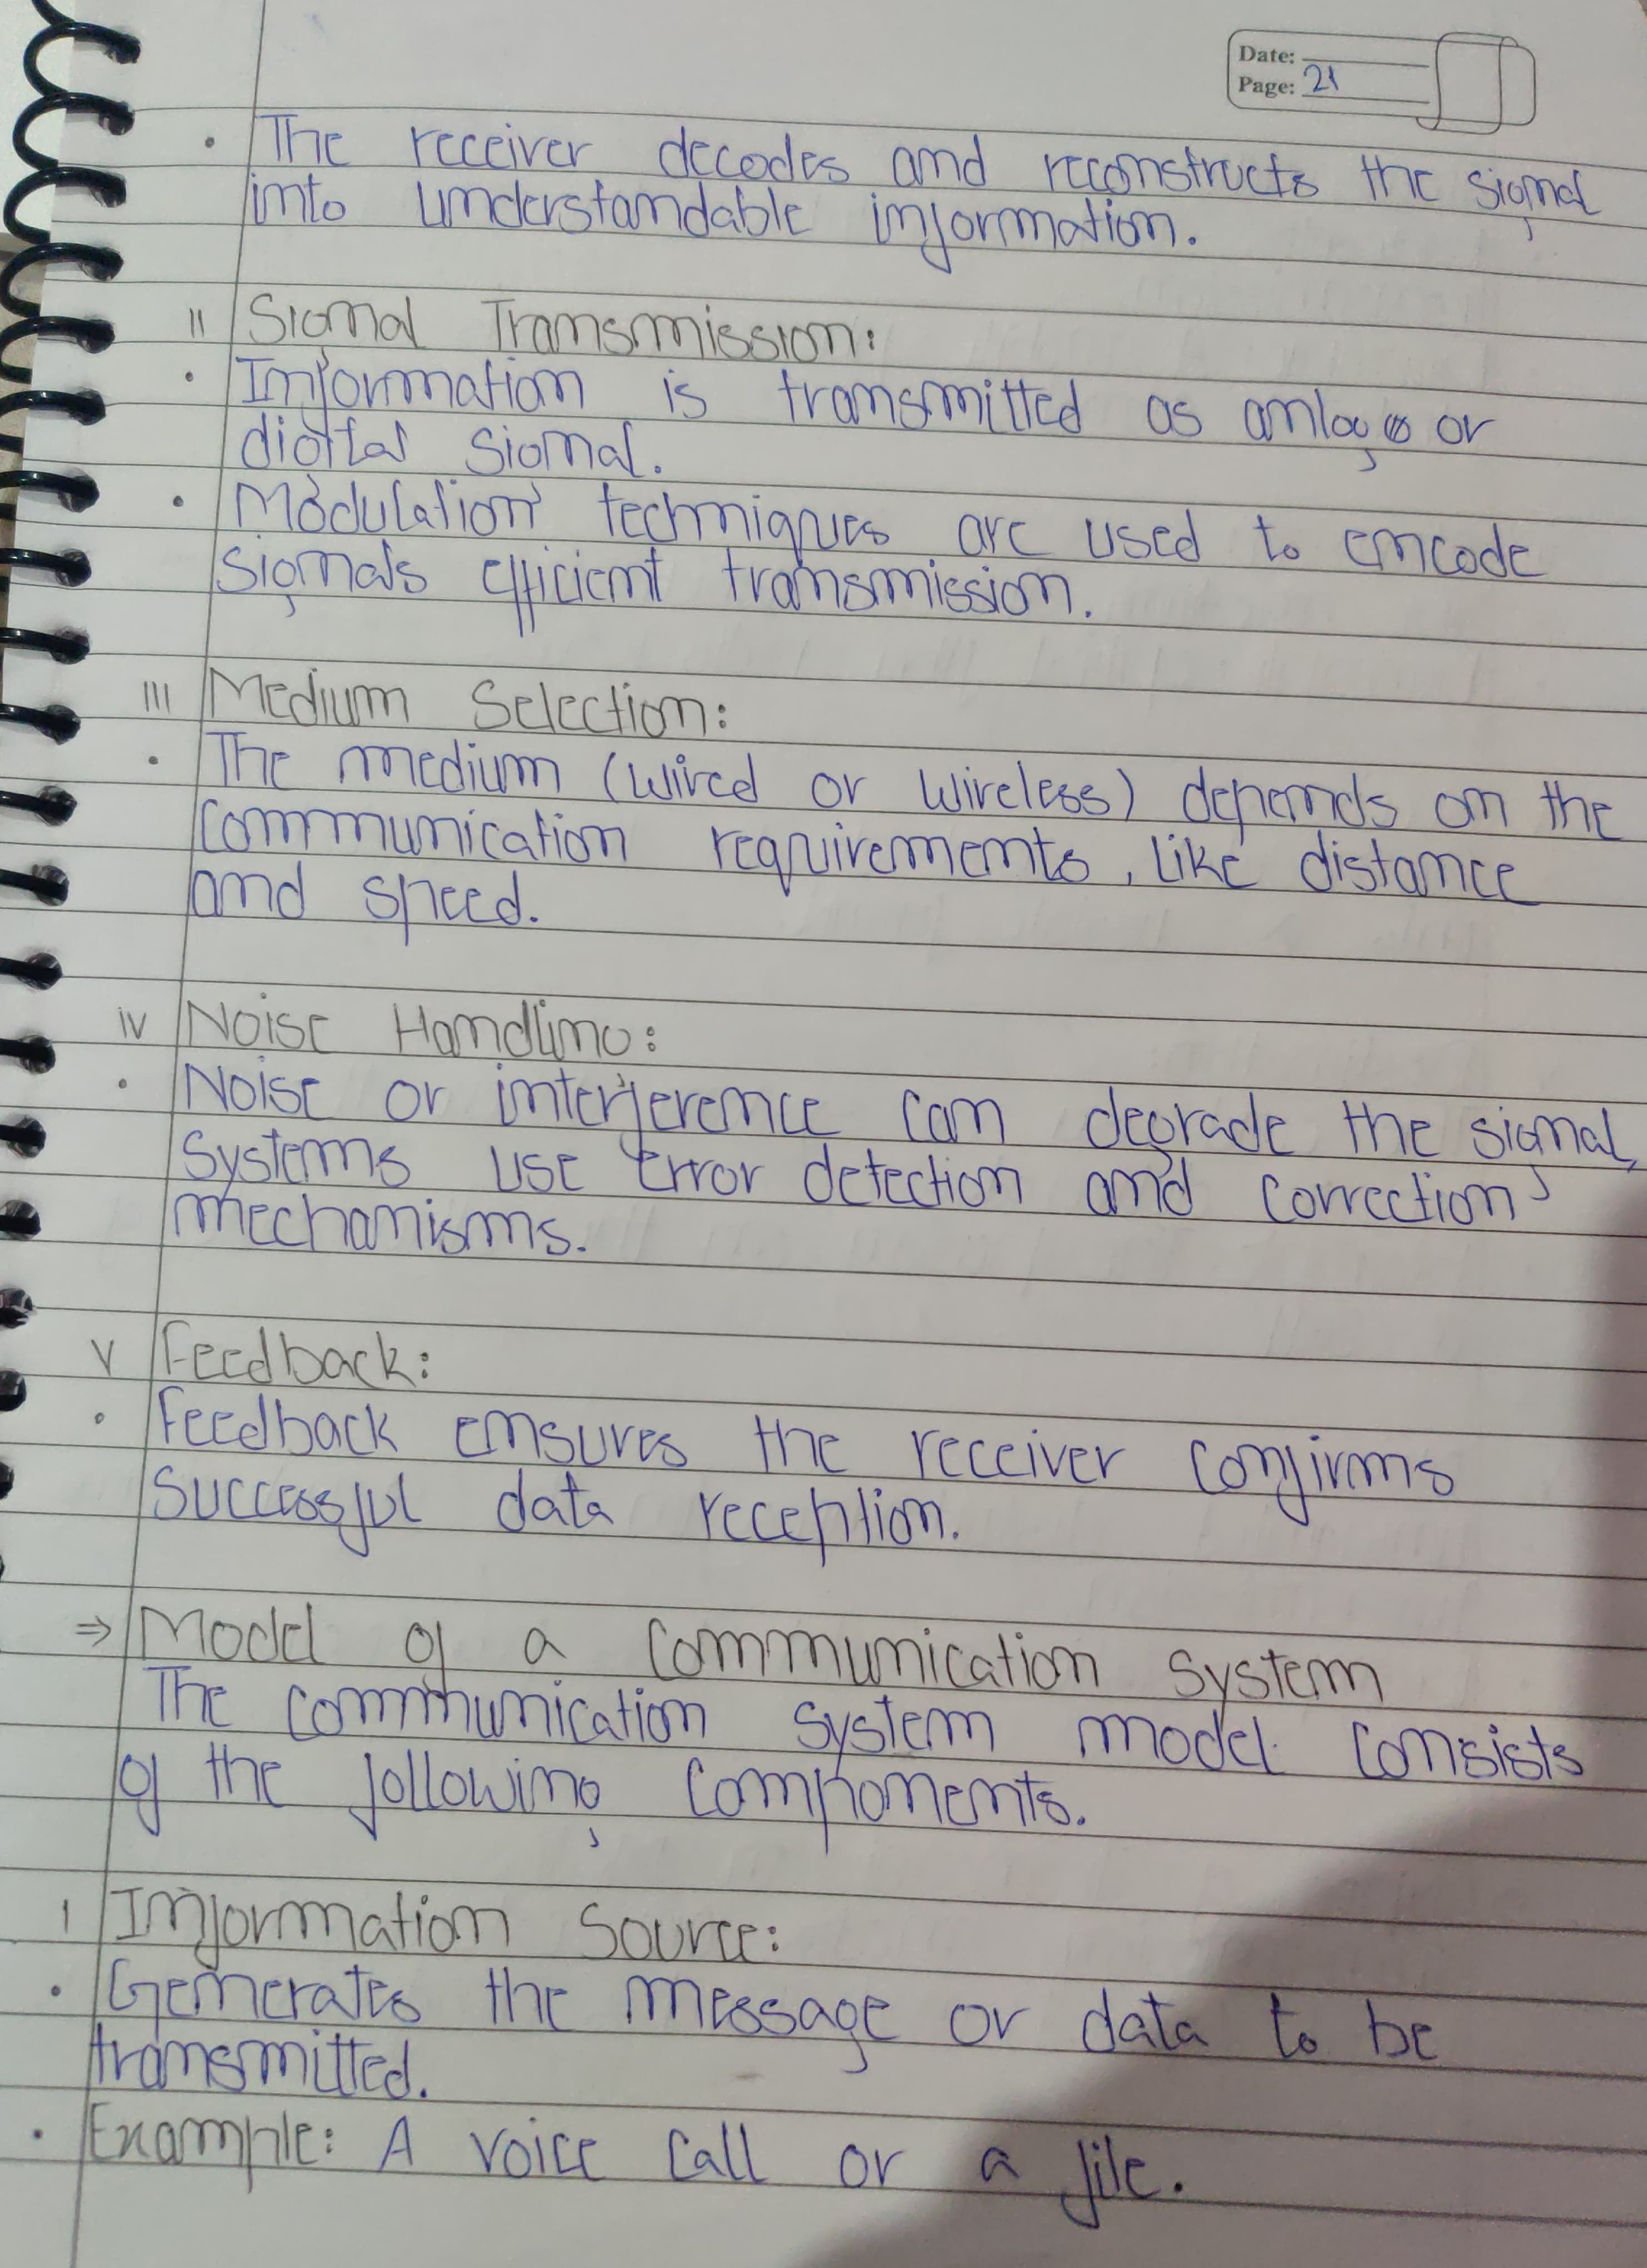 Date:
Page: 21
• The receiver decodes and reconstructs the signal
into understandable information.
II Signal Transmission:
• Information is transmitted as anlog or
digital signal.
• Modulation techniques are used to encode
signals efficient transmission.
III Medium Selection:
• The medium (wired or wireless) depends on the
communication requirements, like distance
and speed.
iv Noise Handling:
• Noise or interference can degrade the signal,
systems use error detection and correction
mechanisms.
V Feedback:
• Feedback ensures the receiver confirms
successful data reception.
⇒ Model of a communication system
The communication system model consists
of the following components.
I Information Source:
• Generates the message or data to be
transmitted.
• Example: A voice call or a file.